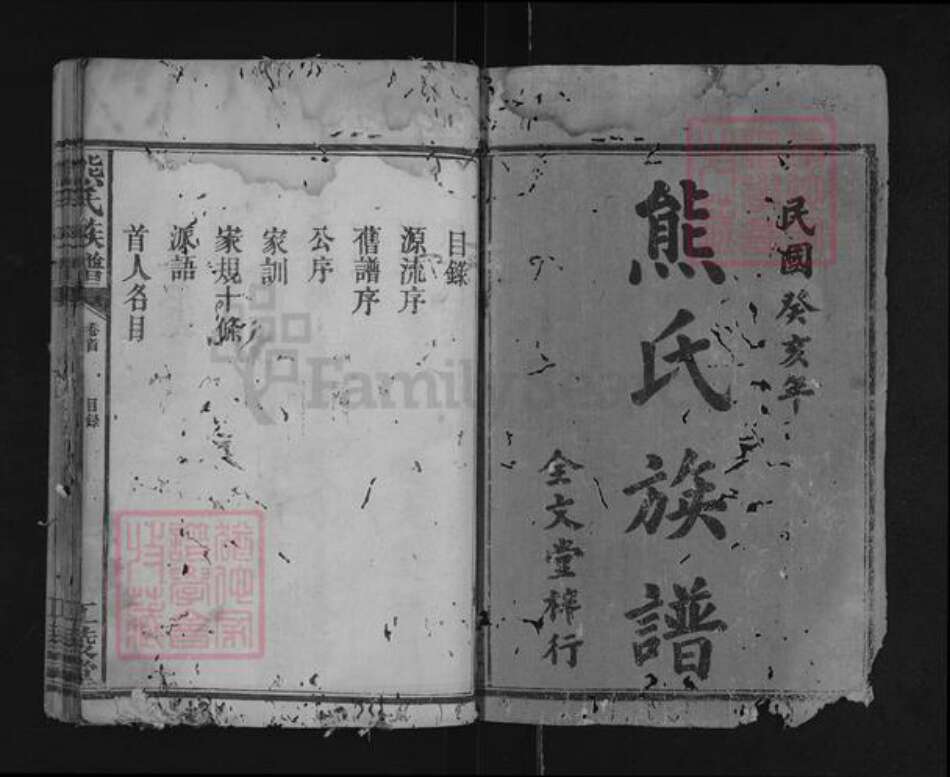 民國癸亥年
熊氏族譜
全文堂梓行
目錄
源流序
舊譜序
公序
家訓
家規十條
派語
首人名目
熊氏族譜
卷首
目錄